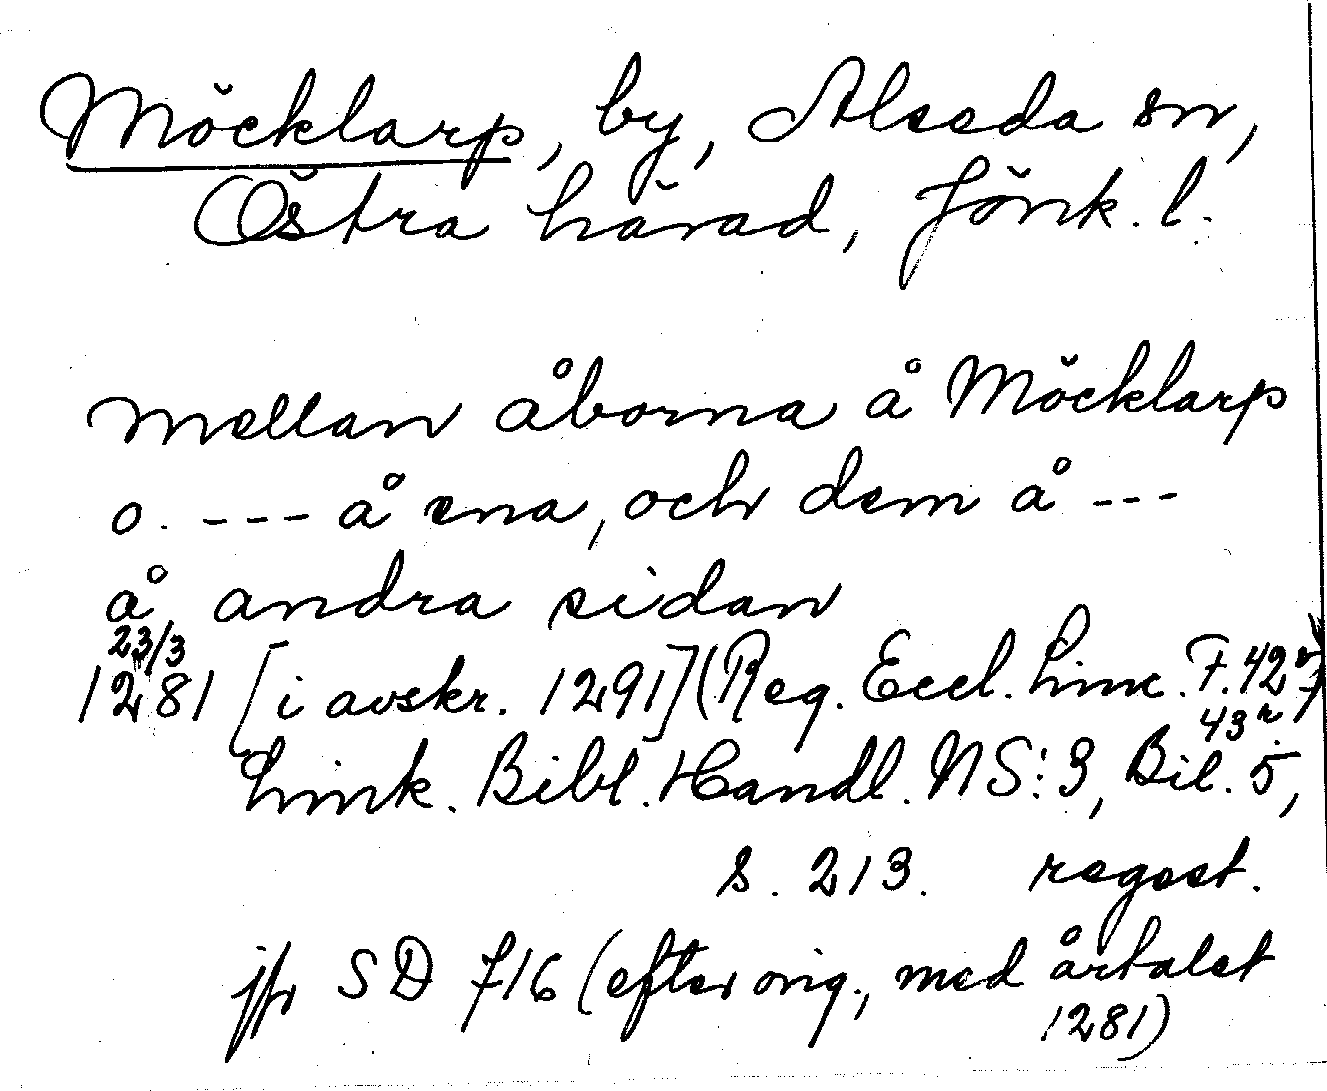 Möcklarp, by, Alseda sn,
Östra härad, Jönk. l.
mellan åborna å Möcklarp
o. --- å ena, och dem å ---
å andra sidan
23/3
1281 [i avskr. 1291] (Reg. Eccl. Linc. F. 42v,
43r)
Link. Bibl. Handl. NS: 3, Bil. 5,
s. 213. regest.
jfr SD 716 (efter orig., med årtalet
1281)